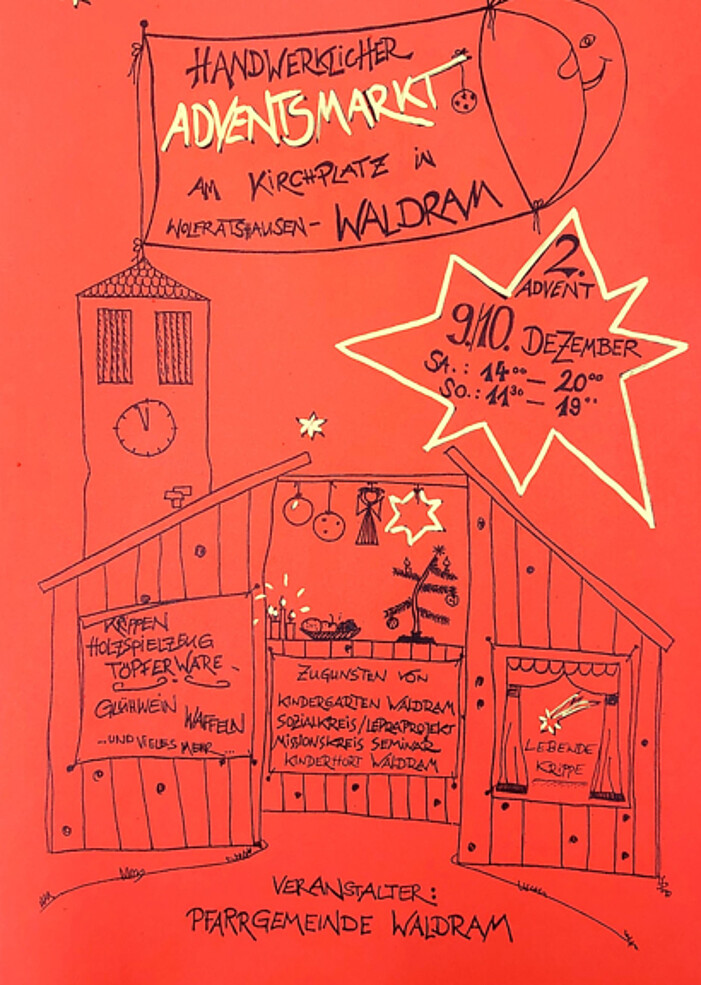 HANDWERKLICHER
ADVENTSMARKT
AM KIRCHPLATZ IN
WOLFRATSHAUSEN - WALDRAM
2.
ADVENT
9./10. DEZEMBER
SA.: 14⁰⁰ — 20⁰⁰
SO.: 11³⁰ — 19⁰⁰
KRIPPEN
HOLZSPIELZEUG
TÖPFERWARE
GLÜHWEIN WAFFELN
...UND VIELES MEHR...
ZUGUNSTEN VON
KINDERGARTEN WALDRAM
SOZIALKREIS/LEPRAPROJEKT
MISSIONSKREIS SEMINAR
KINDERHORT WALDRAM
LEBENDE
KRIPPE
VERANSTALTER:
PFARRGEMEINDE WALDRAM